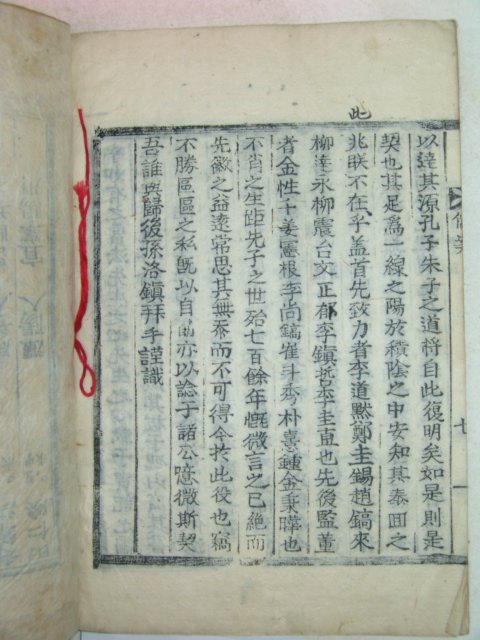 此
以達其源孔子朱子之道將自此復明矣如是則是
契也其足爲一線之陽於積陰之中安知其泰回之
兆眹不在乎盖首先致力者李道黙鄭圭錫趙鎬來
柳達永柳震台文正郁李鎭哲李圭直也先後監董
者金性千姜憲根李尚鎬崔斗秀朴憙鍾金秉曤也
不肖之生距先子之世殆七百餘年慨微言之已絶而
先徽之益遠常思其無忝而不可得今於此役也竊
不勝區區之私旣以自勗亦以諗子諸公噫微斯契
吾誰與歸後孫洛鎭拜手謹識
七